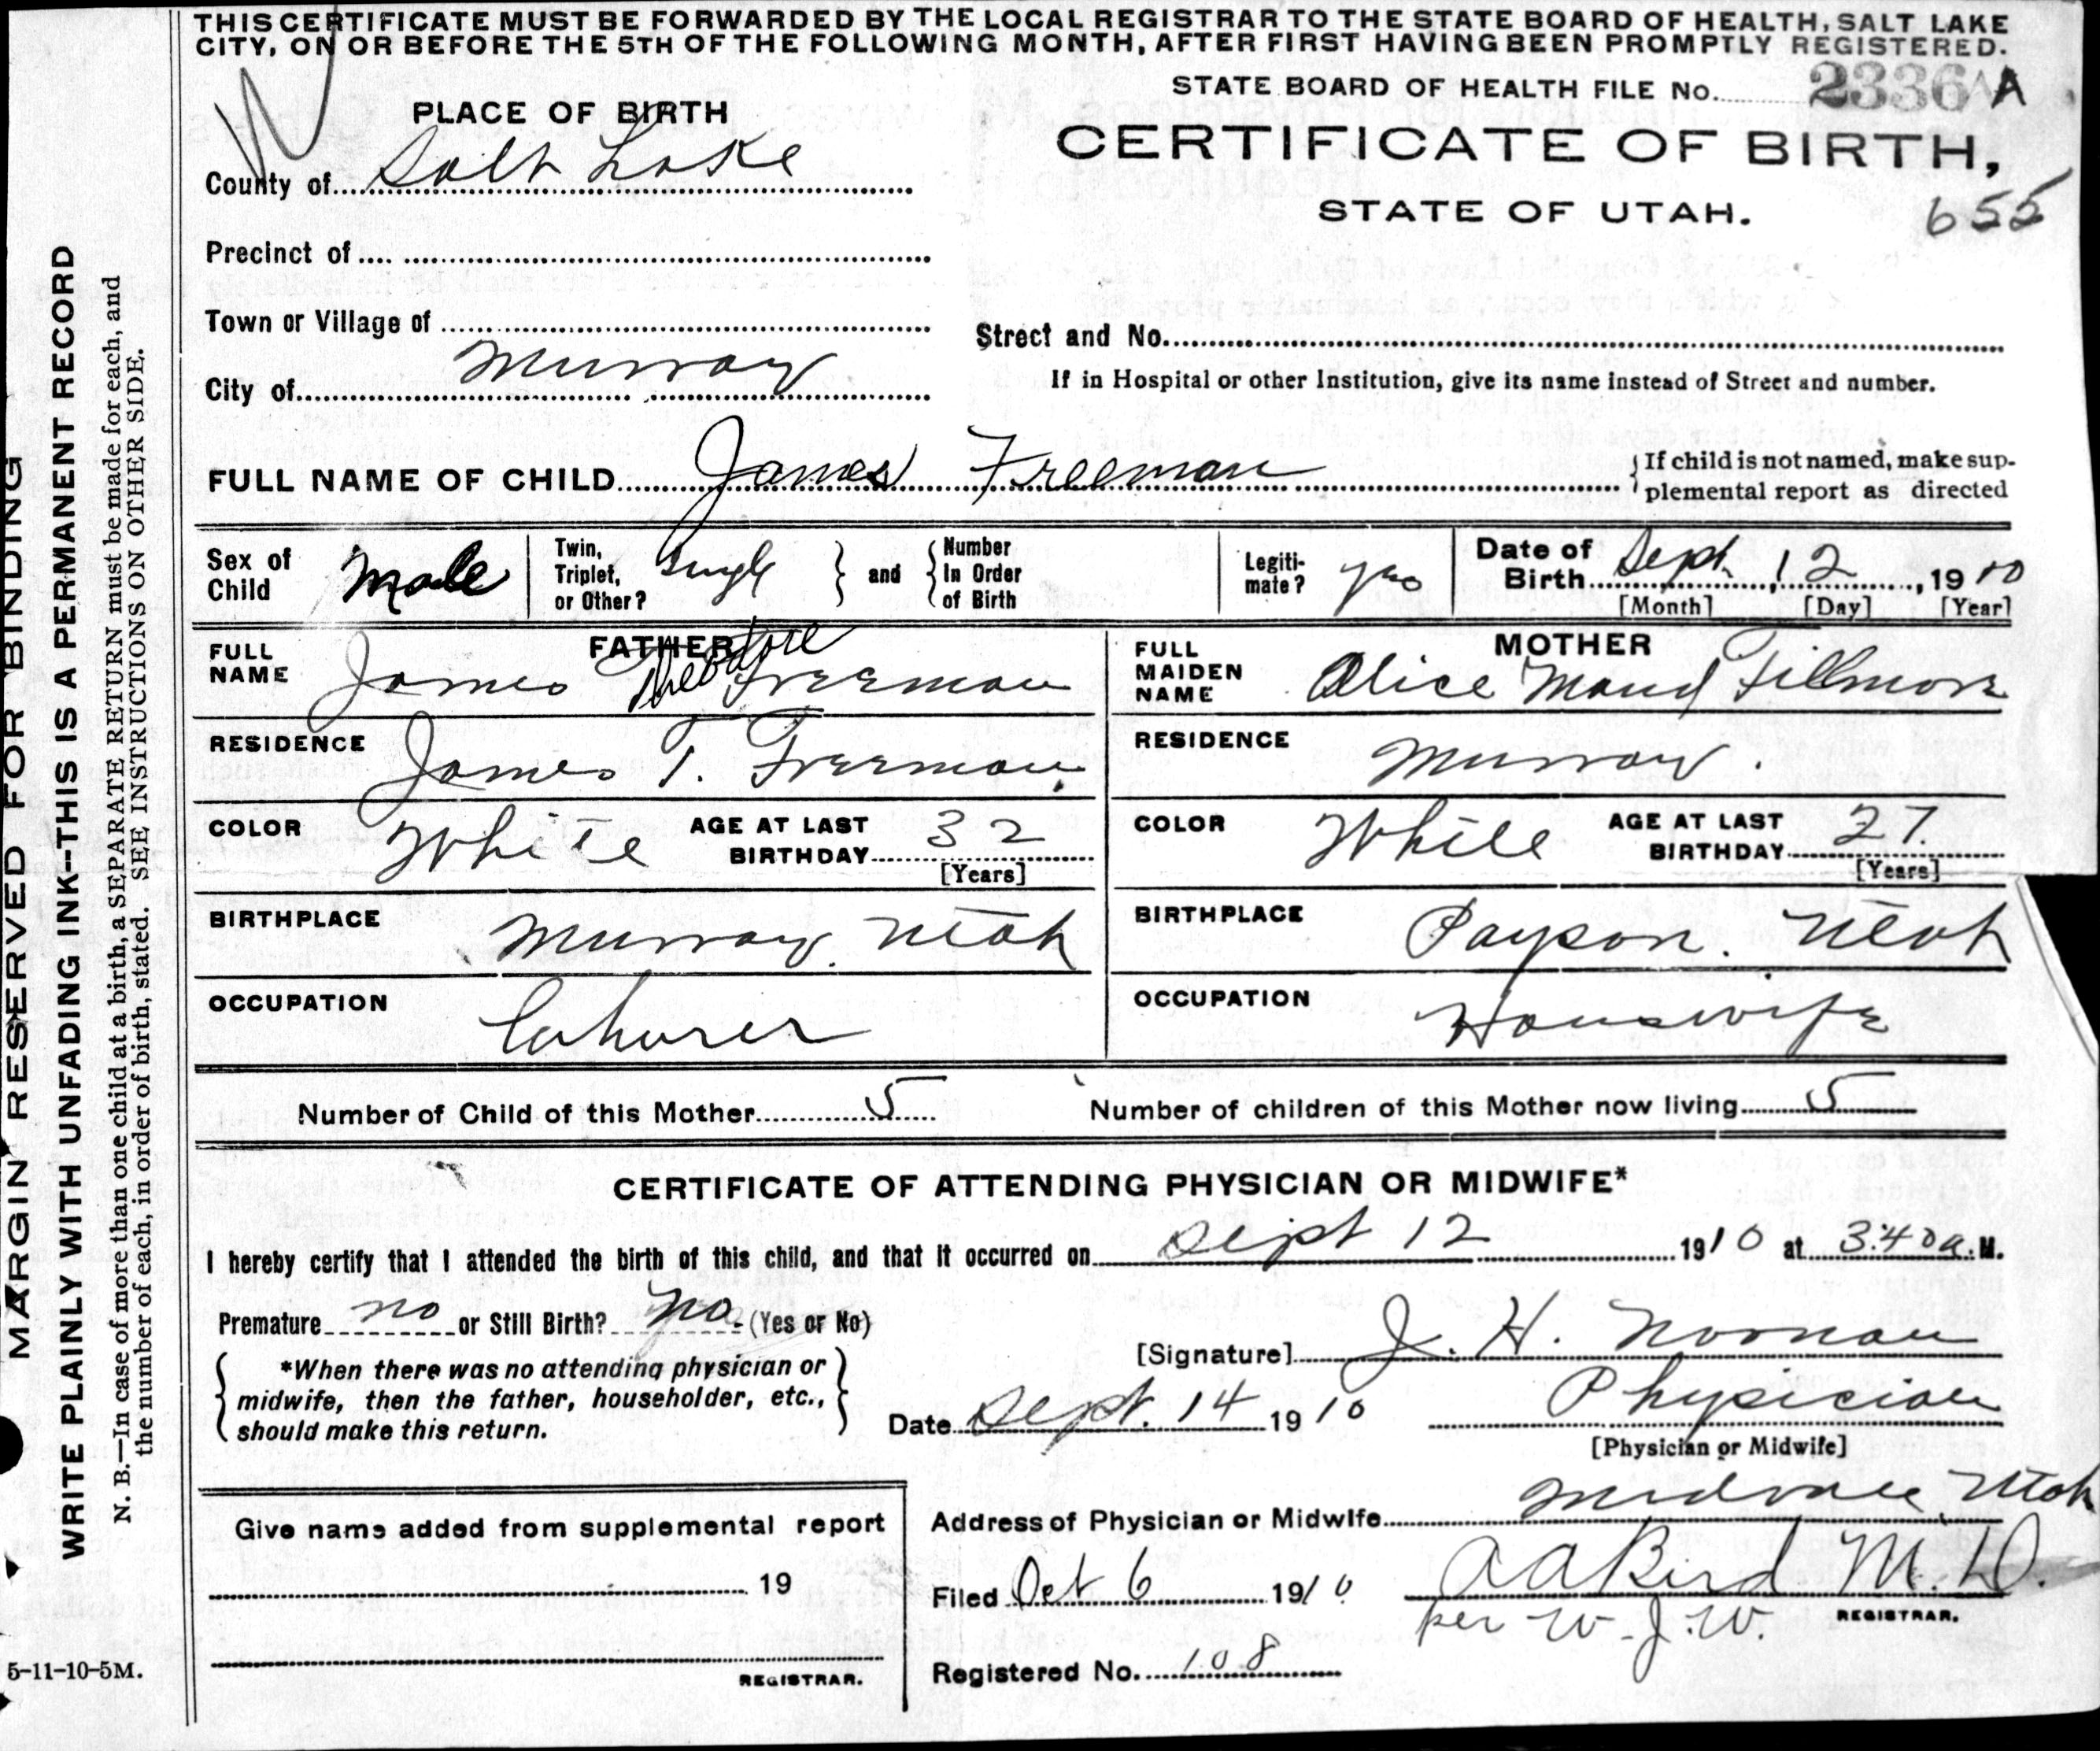 THIS CERTIFICATE MUST BE FORWARDED BY THE LOCAL REGISTRAR TO THE STATE BOARD OF HEALTH, SALT LAKE
CITY, ON OR BEFORE THE 5TH OF THE FOLLOWING MONTH, AFTER FIRST HAVING BEEN PROMPTLY REGISTERED.
STATE BOARD OF HEALTH FILE No. 2336 A
PLACE OF BIRTH
CERTIFICATE OF BIRTH,
STATE OF UTAH.
655
County of Salt Lake
Precinct of
Town or Village of
Street and No.
City of Murray
If in Hospital or other Institution, give its name instead of Street and number.
FULL NAME OF CHILD James Freeman
If child is not named, make sup-
plemental report as directed
Sex of Child Male
Twin, Triplet, or Other? Single
and Number In Order of Birth
Legiti-mate? yes
Date of Birth Sept. 12, 1910
[Month] [Day] [Year]
FATHER
FULL NAME James Theodore Freeman
RESIDENCE James T. Freeman
COLOR White AGE AT LAST BIRTHDAY 32
[Years]
BIRTHPLACE Murray. Utah
OCCUPATION Laborer
MOTHER
FULL MAIDEN NAME Alice Maud Fillmore
RESIDENCE Murray.
COLOR White AGE AT LAST BIRTHDAY 27.
[Years]
BIRTHPLACE Payson. Utah
OCCUPATION Housewife
Number of Child of this Mother 5 Number of children of this Mother now living 5
CERTIFICATE OF ATTENDING PHYSICIAN OR MIDWIFE*
I hereby certify that I attended the birth of this child, and that it occurred on Sept 12 1910 at 3:40 a. M.
Premature no or Still Birth? no. (Yes or No)
*When there was no attending physician or
midwife, then the father, householder, etc.,
should make this return.
[Signature] J. H. Noonan
Date Sept. 14 1910 Physician
[Physician or Midwife]
Address of Physician or Midwife Midvale Utah
Filed Oct 6 1910 A A Bird M. D.
per W. J. W. REGISTRAR.
Registered No. 108
Give name added from supplemental report
19
REGISTRAR.
MARGIN RESERVED FOR BINDING
WRITE PLAINLY WITH UNFADING INK--THIS IS A PERMANENT RECORD
N. B.—In case of more than one child at a birth, a SEPARATE RETURN must be made for each, and
the number of each, in order of birth, stated. SEE INSTRUCTIONS ON OTHER SIDE.
5-11-10-5M.